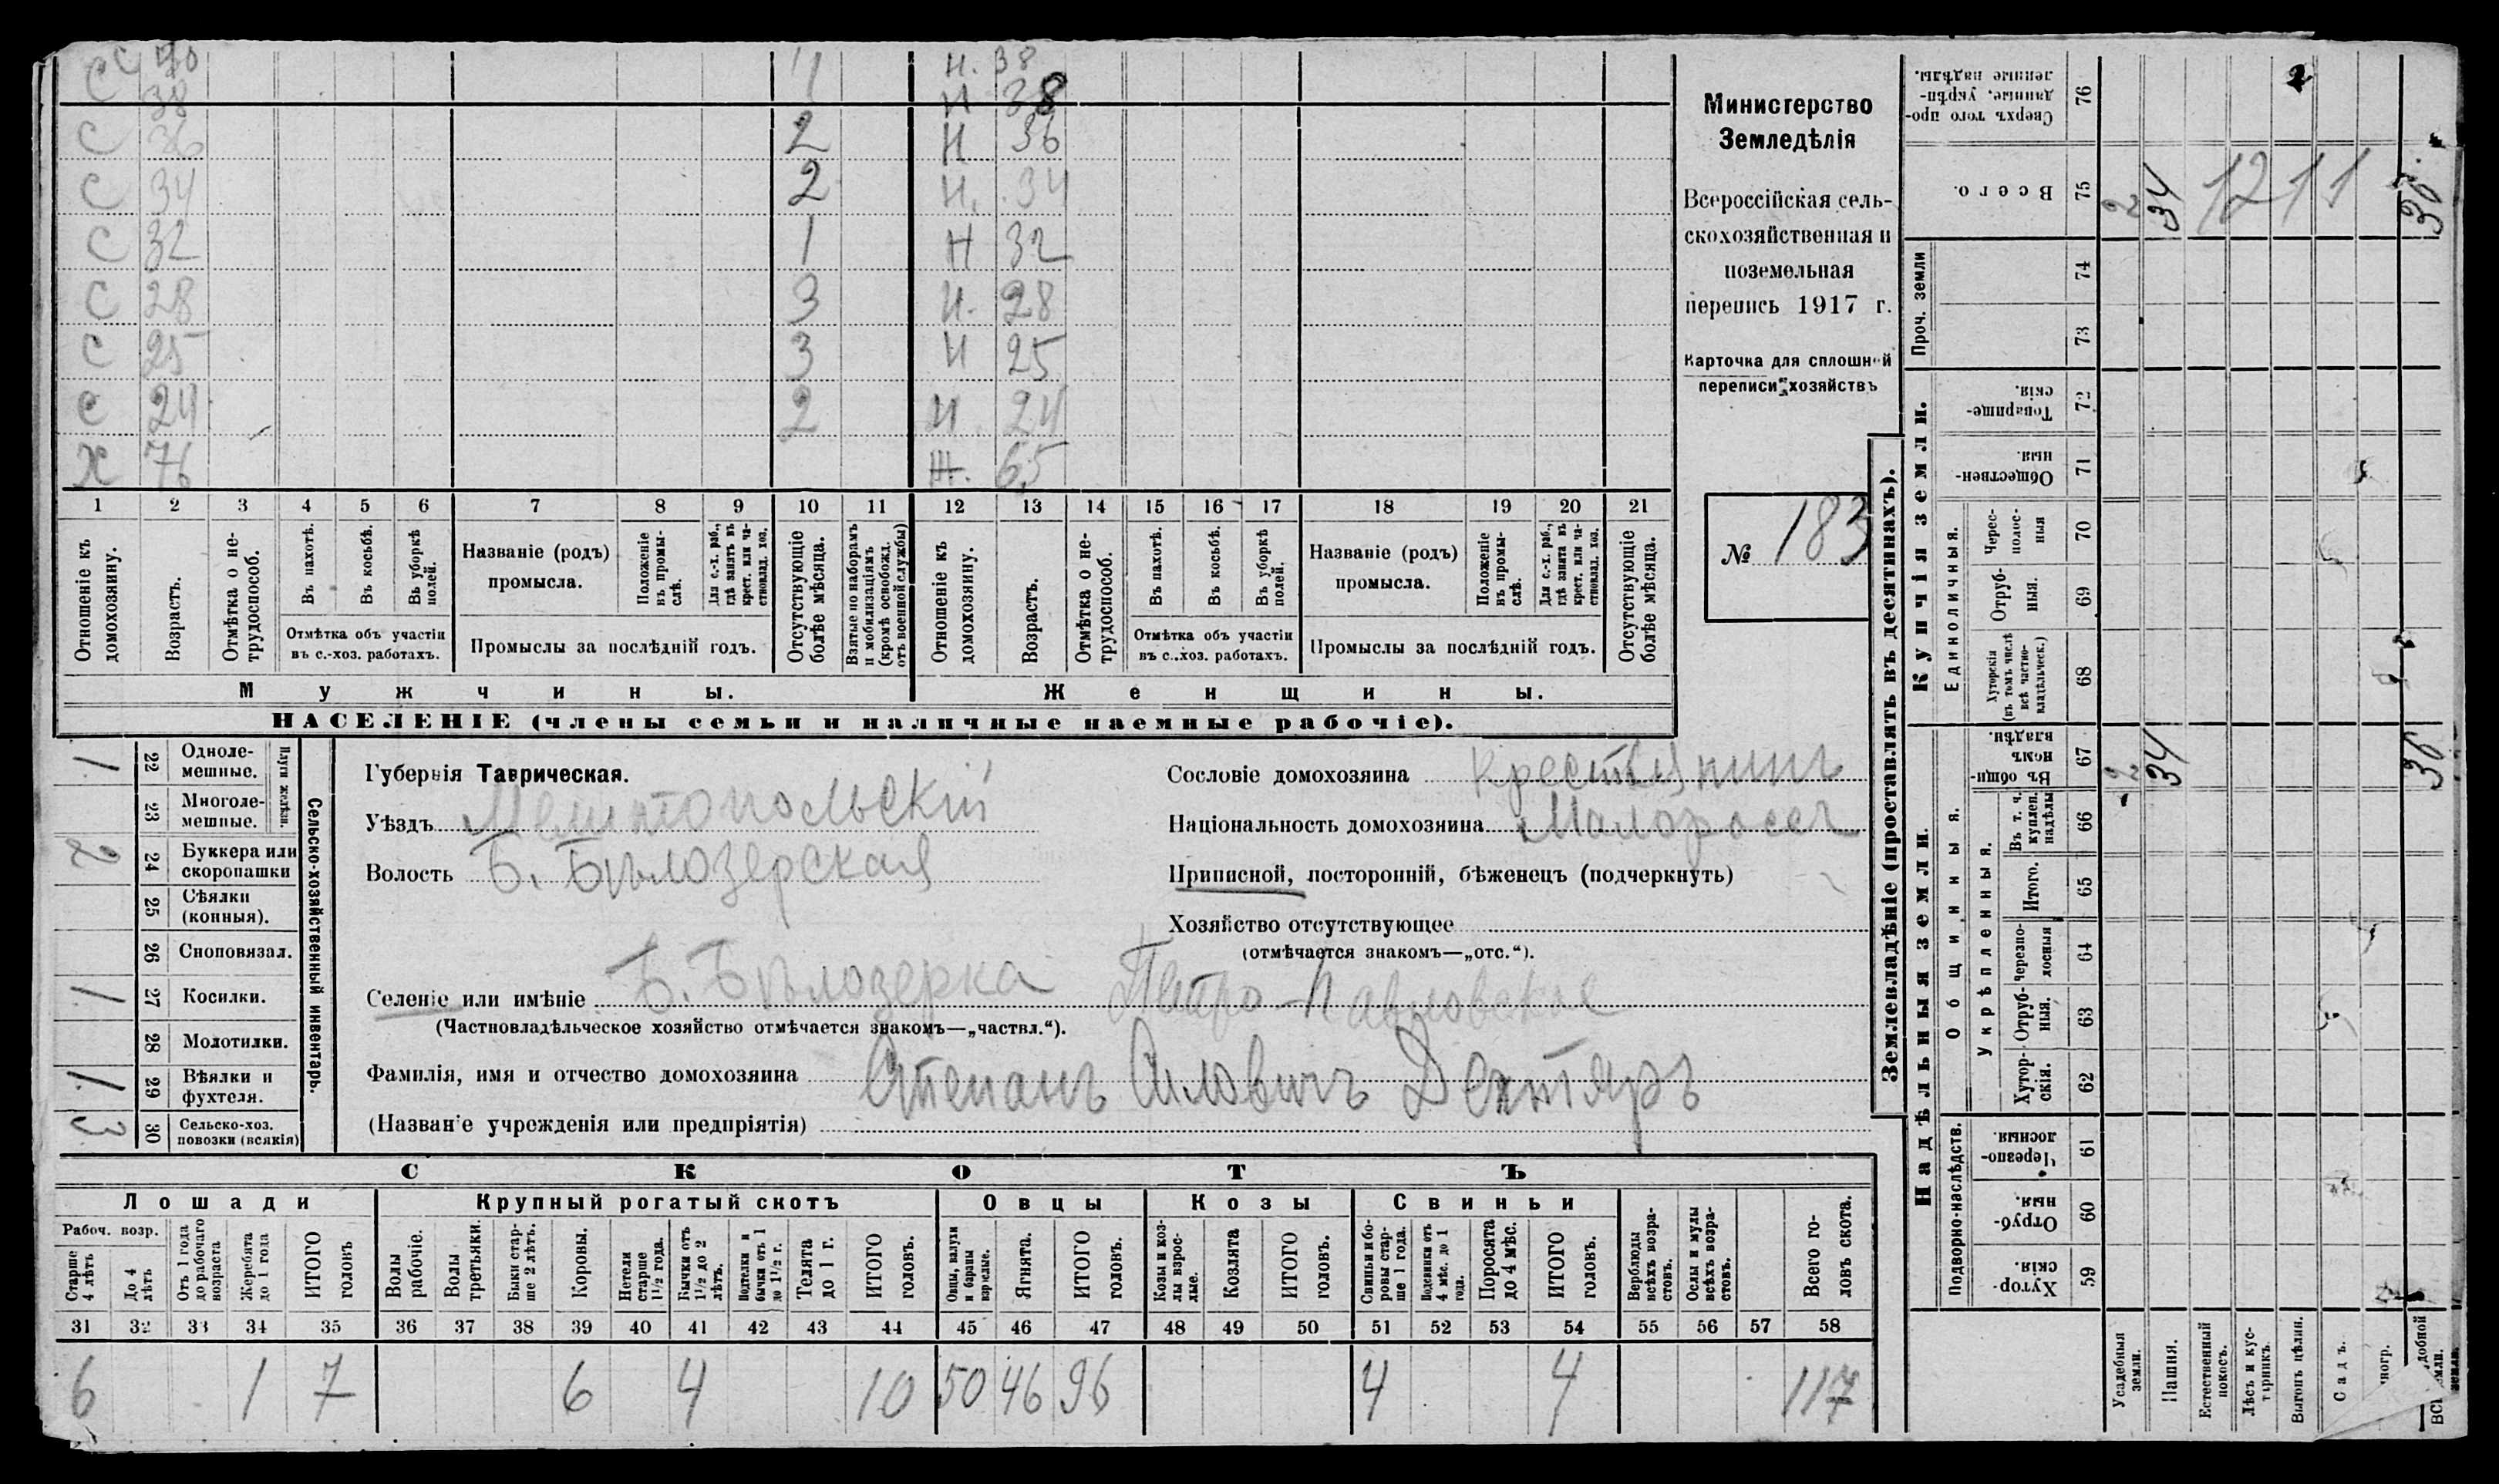 С 38 1 Н 38
С 36 2 Н 36
С 34 2 Н. 34
С 32 1 Н 32
С 28 3 Н. 28
С 25 3 Н 25
С 24 2 Н. 24
Х 76 Ж. 65
1 2 3 4 5 6 7 8 9 10 11 12 13 14 15 16 17 18 19 20 21
Отношеніе къ домохозяину.
Возрастъ.
Отмѣтка о не-трудоспособ.
Въ пахотѣ.
Въ косьбѣ.
Въ уборкѣ полей.
Отмѣтка объ участіи
въ с.-хоз. работахъ.
Названіе (родъ)
промысла.
Положеніе въ промы-слѣ.
Для с.-х. раб., гдѣ занятъ въ крест. или ча-стновлад. хоз.
Промыслы за послѣдній годъ.
Отсутствующіе болѣе мѣсяца.
Взятые по наборамъ и мобилизаціямъ (кромѣ освобожд. отъ военной службы)
Отношеніе къ домохозяину.
Возрастъ.
Отмѣтка о не-трудоспособ.
Въ пахотѣ.
Въ косьбѣ.
Въ уборкѣ полей.
Отмѣтка объ участіи
въ с.-хоз. работахъ.
Названіе (родъ)
промысла.
Положеніе въ промы-слѣ.
Для с.-х. раб., гдѣ занята въ крест. или ча-стновлад. хоз.
Промыслы за послѣдній годъ.
Отсутствующіе болѣе мѣсяца.
Мужчины. Женщины.
НАСЕЛЕНІЕ (члены семьи и наличные наемные рабочіе).
Министерство
Земледѣлія
Всероссійская сель-
скохозяйственная и
поземельная
перепись 1917 г.
Карточка для сплошной
переписи хозяйствъ
№ 183
Сельско-хозяйственный инвентарь.
Плуги желѣзн.
1 22 Одноле-мешные.
23 Многоле-мешные.
2 24 Буккера или скоропашки
25 Сѣялки (конныя).
26 Сноповязал.
1 27 Косилки.
28 Молотилки.
1 29 Вѣялки и фухтеля.
3 30 Сельско-хоз. повозки (всякія)
Губернія Таврическая.
Уѣздъ Мелитопольскій
Волость Б. Бѣлозерская
Сословіе домохозяина крестьянинъ
Національность домохозяина Малороссъ
Приписной, посторонній, бѣженецъ (подчеркнуть)
Хозяйство отсутствующее
(отмѣчается знакомъ—„отс.“).
Селеніе или имѣніе Б. Бѣлозерка Петро-Павловское
(Частновладѣльческое хозяйство отмѣчается знакомъ—„частвл.“).
Фамилія, имя и отчество домохозяина Степанъ Иловичъ Дехтярь
(Названіе учрежденія или предпріятія)
СКОТЪ
Лошади Крупный рогатый скотъ Овцы Козы Свиньи
Рабоч. возр.
Старше 4 лѣтъ
До 4 лѣтъ
Отъ 1 года до рабочаго возраста
Жеребята до 1 года
ИТОГО головъ
Волы рабочіе.
Волы третьяки.
Быки стар-ше 2 лѣтъ.
Коровы.
Нетели старше 1½ года.
Бычки отъ 1½ до 2 лѣтъ.
Подтелки и бычки отъ 1 до 1½ г.
Телята до 1 г.
ИТОГО головъ.
Овцы, валухи и бараны взрослые.
Ягнята.
ИТОГО головъ.
Козы и коз-лы взрос-лые.
Козлята
ИТОГО головъ.
Свиньи и бо-ровы стар-ше 1 года.
Подсвинки отъ 4 мѣс. до 1 года.
Поросята до 4 мѣс.
ИТОГО головъ.
Верблюды всѣхъ возра-стовъ.
Ослы и мулы всѣхъ возра-стовъ.
Всего го-ловъ скота.
31 32 33 34 35 36 37 38 39 40 41 42 43 44 45 46 47 48 49 50 51 52 53 54 55 56 57 58
6 1 7 6 4 10 50 46 96 4 4 117
Землевладѣніе (проставлять въ десятинахъ).
Надѣльныя земли.
Купчія земли.
Проч. земли
Подворно-наслѣдств.
Общинныя.
Укрѣпленныя.
Единоличныя.
Сверхъ того про-данные, укрѣп-ленные надѣлы. 76
Всего. 75 2 34 36
74
73
Товарище-скія. 72
Обществен-ныя. 71
Черес-полос-ныя 70
Отруб-ныя. 69
Хуторскія (въ томъ числѣ всѣ частно-владѣльческ.) 68
Въ общин-номъ владѣн. 67 2 34 36
Въ т. ч. куплен. надѣлы 66
Итого. 65
Черезпо-лосныя 64
Отруб-ныя. 63
Хутор-скія. 62
Черезпо-лосныя. 61
Отруб-ныя. 60
Хутор-скія. 59
Усадебныя земли.
Пашня.
Естественный покосъ.
Лѣсъ и кус-тарникъ.
Выгонъ цѣлин.
Садъ.